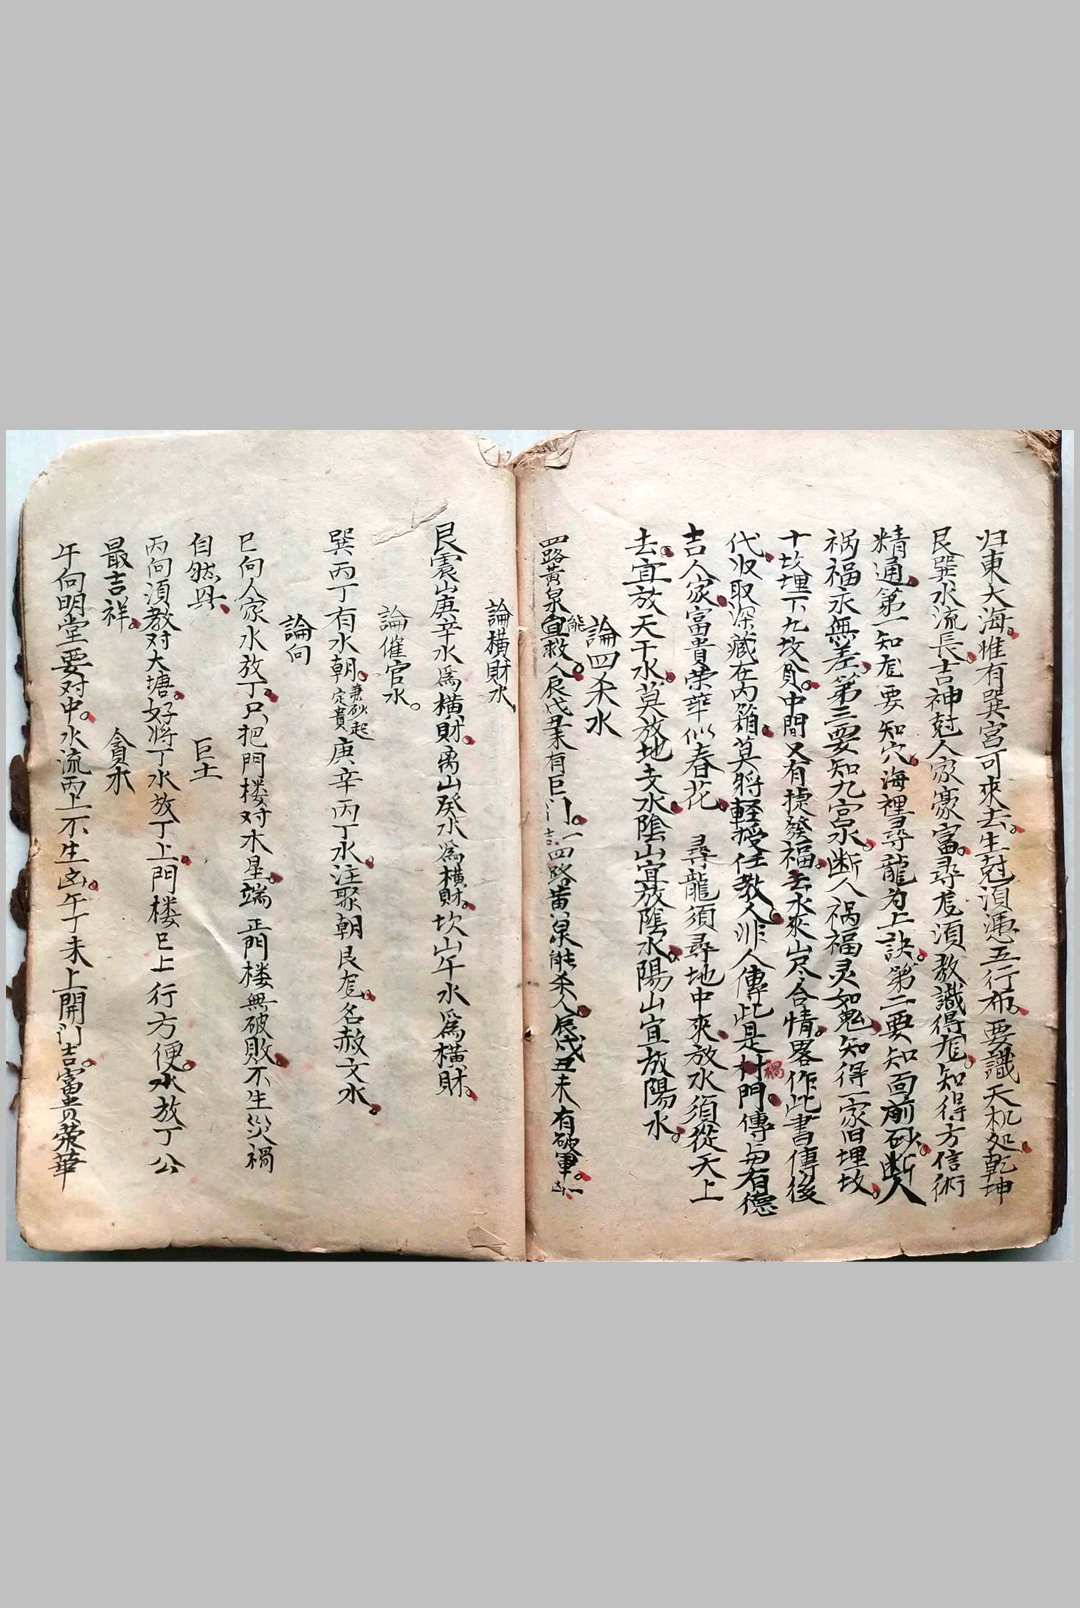 归東大海。惟有巽宮可來去。生尅須憑五行布。要識天机処乾坤
艮巽水流長。吉神尅人家豪富。尋龙須教識得龙。知得方信術
精通。第一知龙要知穴。海裡尋龍为上訣。第二要知面前砂。断人
祸福永無差。第三要知九宮水。断人祸福灵如鬼。知得一家旧埋坟。
十坟埋下九坟貧。中間又有捷發福。去水來山尽合情。畧作此書傳後
代。收取深藏在内箱。莫将軽授任教人。非人傳此是禍門。傳与有德
吉人家。富貴荣華似春花。尋龍須尋地中來。放水須從天上
去。宜放天干水。莫放地支水。陰山宜放陰水。陽山宜放陽水。
論四杀水
四路黄泉能救人。辰戌丑未有巨门。一 四路黄泉能杀人。辰戌丑未有破軍。一
論橫財水
艮震山庚辛水爲橫財。离山癸水爲橫財。坎山午水爲橫財。
論催官水。
巽丙丁有水朝。兼砂起定貴 庚辛丙丁水。注聚朝艮龙。名赦文水。
論向
巳向人家水放丁。只把門楼对水星。端正門楼無破敗。不生災禍
自然昇。 巨土
丙向須教对大塘。好将丁水放丁上。門楼巳上行方便。水放丁公
最吉祥。 貪水
午向明堂要对中。水流丙上不生凶。午丁未上開门吉。富貴荣華